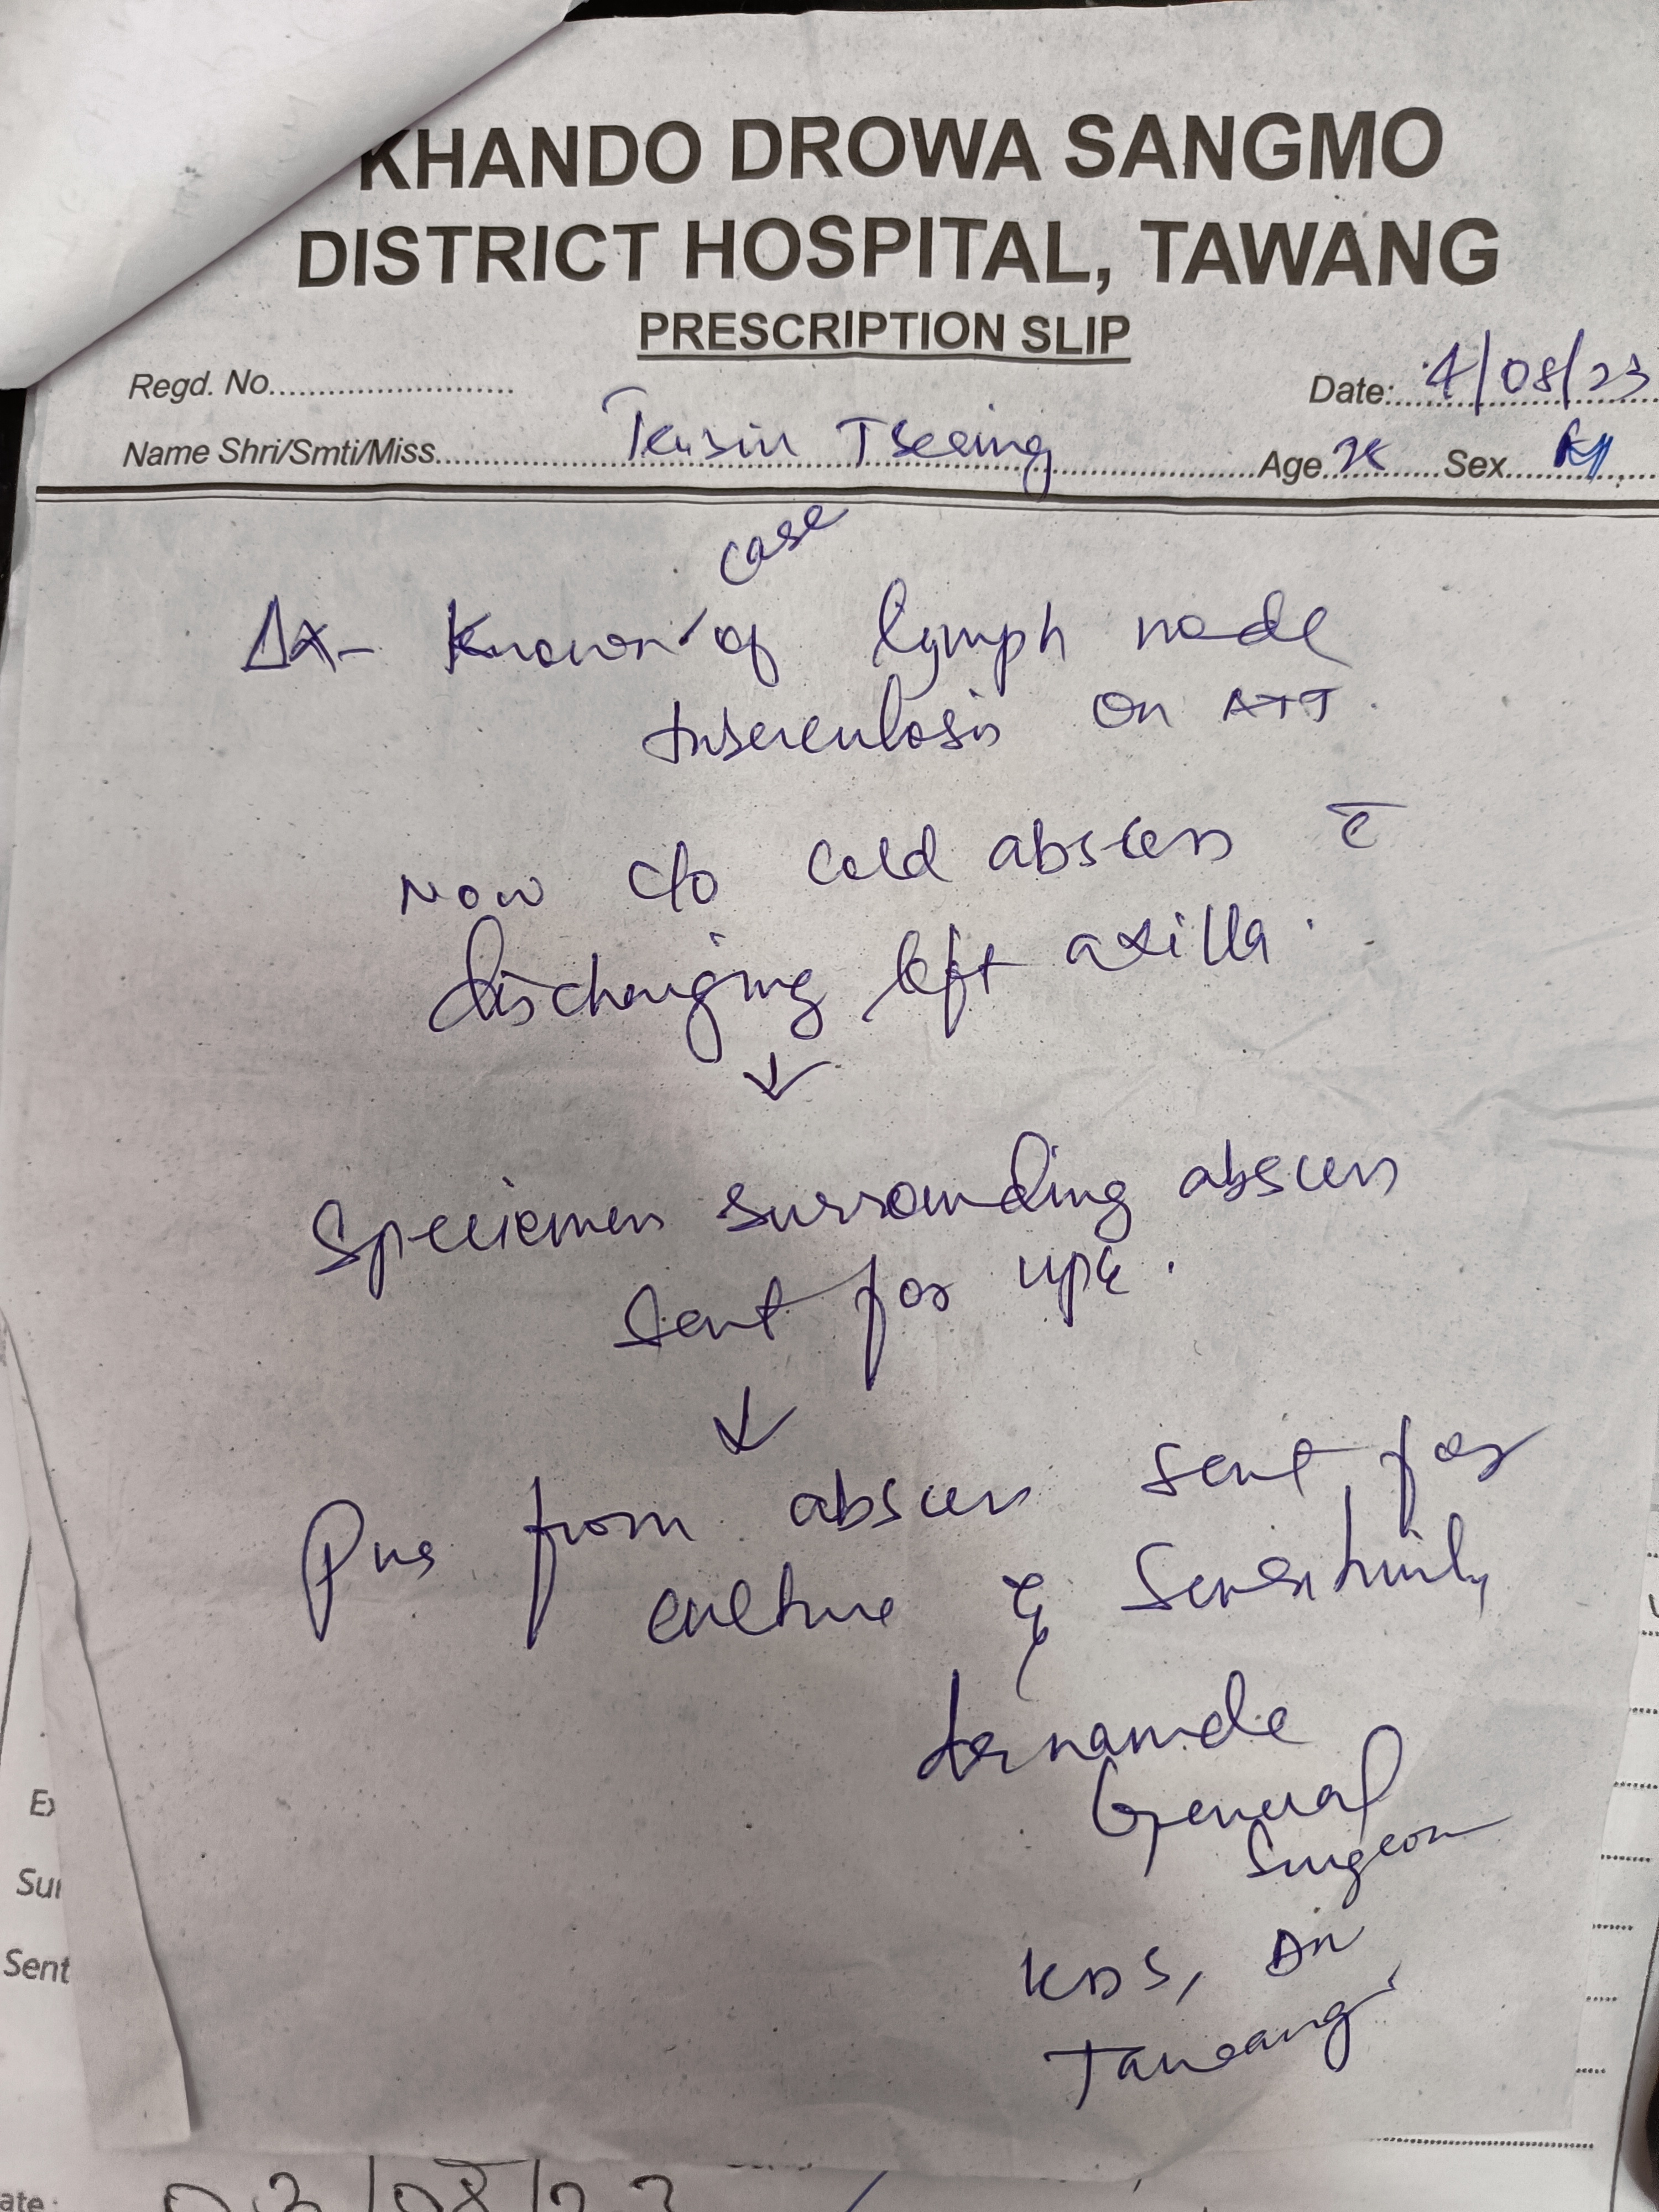 KHANDO DROWA SANGMO
DISTRICT HOSPITAL, TAWANG
PRESCRIPTION SLIP
Regd. No........................ Date: 4/08/23
Name Shri/Smti/Miss Tsering Age Sex M
case
Δx- Known of lymph node
tuberculosis on ATT.
Now c/o cold abscess c̄
discharging left axilla.
↓
Specimen surrounding abscess
sent for HPE.
↓
Pus from abscess sent for
culture & sensitivity
General
Surgeon
KDS, DH
Tawang
Ex
Sur
Sent
ate: 03/08/23